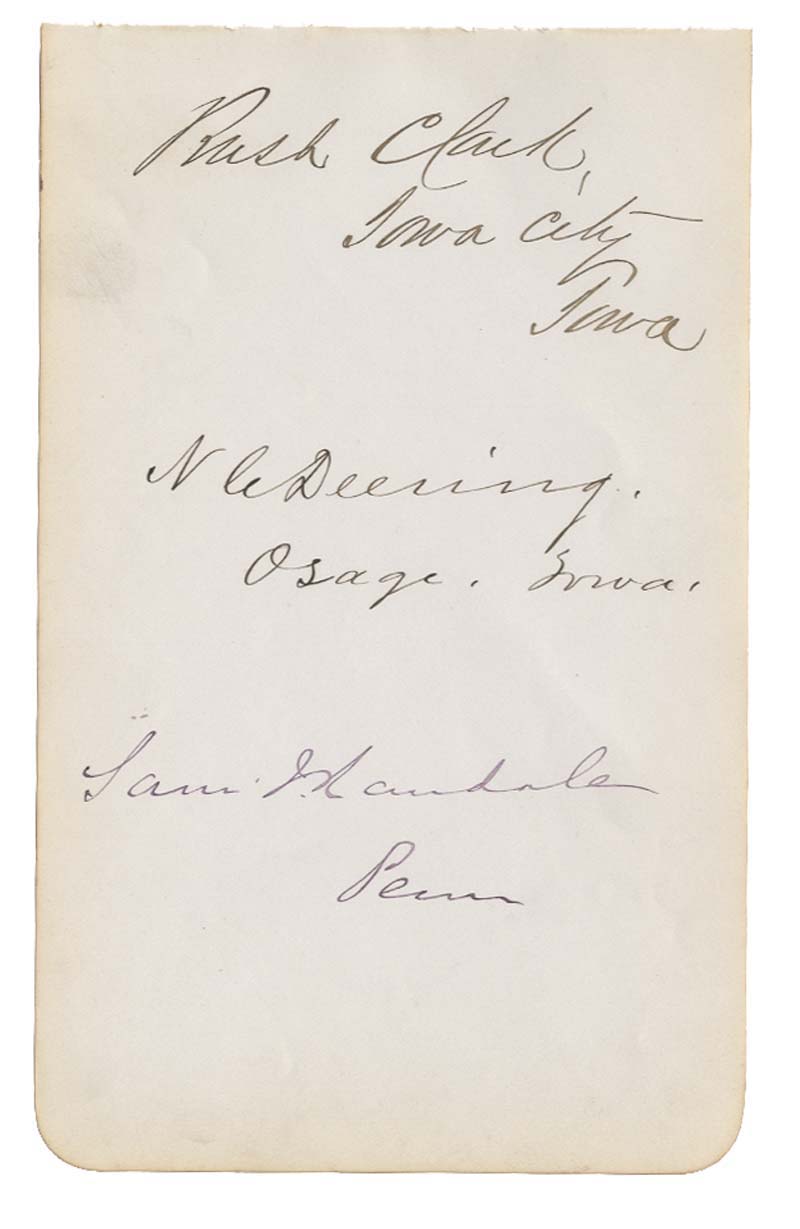 Rush Clark,
Iowa City
Iowa
N C Deering.
Osage. Iowa.
Sam J Randall
Penn